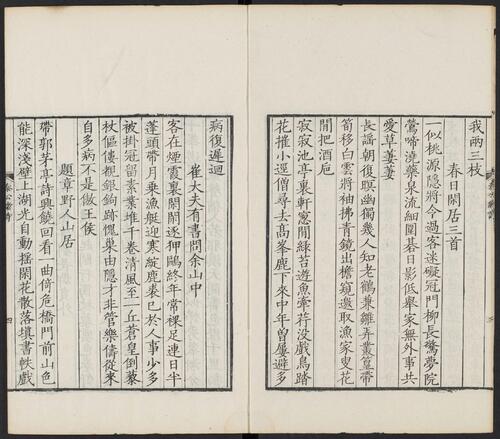 我兩三枝
春日閑居三首
一似桃源隱將令過客迷礙冠門柳長驚夢院
鶯啼澆藥泉流細圍碁日影低舉家無外事共
愛草萋萋
長謡朝復暝幽獨幾人知老鶴兼雛弄叢篁帶
筍移白雲將袖拂青鏡出檐窺邀取漁家叟花
間把酒巵
寂寂池亭裏軒窻間綠苔遊魚牽荇没戲鳥踏
花摧小逕僧尋去高峯鹿下來中年曾屢避多
病復遲迴
崔大夫有書問余山中
客在煙霞裏閑閑逐狎鷗終年常裸足連日半
蓬頭帶月乘漁艇迎寒綻鹿裘已於人事少多
被掛冠留素業堆千卷清風至一丘蒼皇倒藜
杖傴僂覩銀鉤跡愧巢由隱才非管樂儔從來
自多病不是傲王侯
題章野人山居
帶郭茅亭詩興饒回看一曲倚危橋門前山色
能深淺壁上湖光自動搖閑花散落填書帙戲